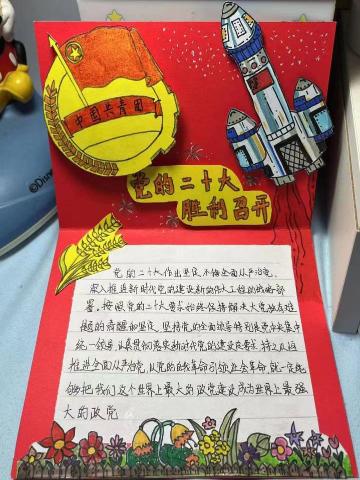 中国共青团
党的二十大
胜利召开
©Disn
党的二十大作出坚定不移全面从严治党,
深入推进新时代党的建设新的伟大工程的战略部
署。按照党的二十大要求始终保持解决大党独有难
题的清醒和坚定,坚持党的全面领导特别是党中央集中
统一领导,认真贯彻落实新时代党的建设总要求,持之以恒
推进全面从严治党,以党的自我革命引领社会革命,就一定能
够把我们这个世界上最大的政党建设成为世界上最强
大的政党